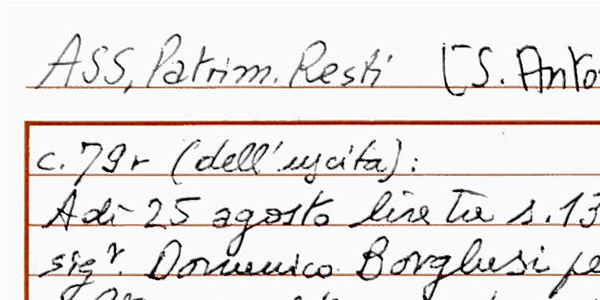 ASS, Patrim. Resti [S. Anto
c. 79r (dell'uscita):
Adì 25 agosto lire tre s. 13
sigr. Domenico Borghesi pe